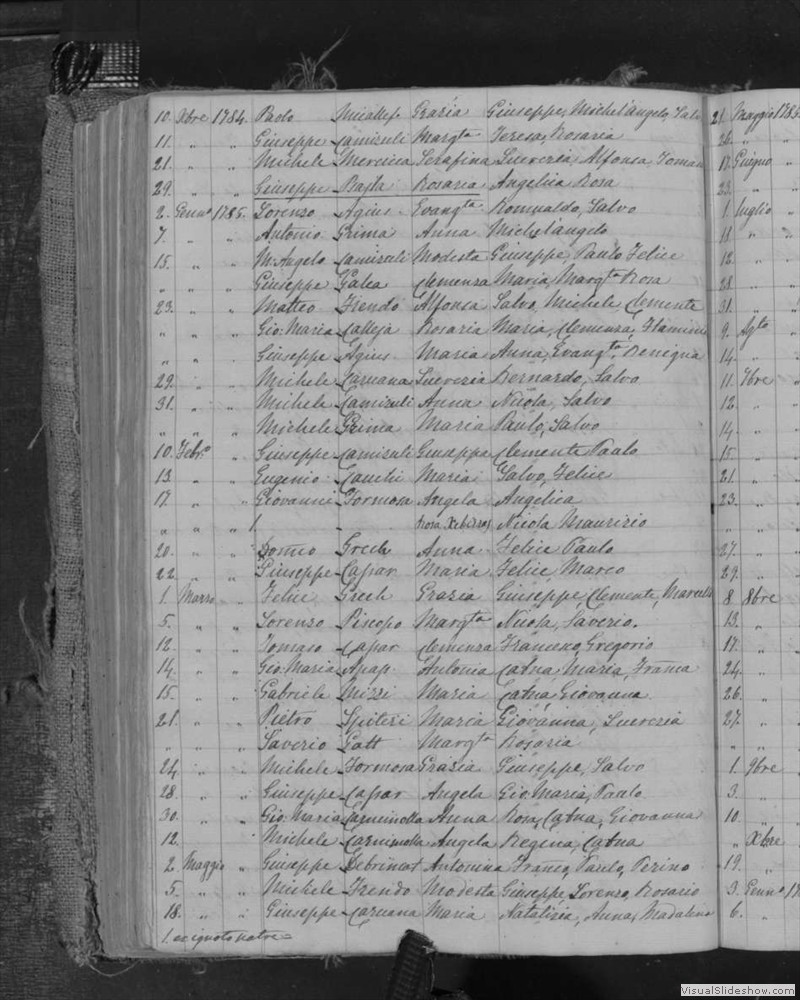 10. Xbre 1784. Paolo Micallef Grazia Giuseppe, Michel'angelo, Salv
11. „ „ Giuseppe Camisuli Margta Teresa, Rosaria
21. „ „ Michele Mercieca Serafina Lucrezia, Alfonsa, Toman
29. „ „ Giuseppe Rosaria Angelica Rosa
2. Genno 1785. Lorenzo Agius Evangta Romualdo, Salvo
7. „ „ Antonio Grima Anna Michel'angelo
15. „ „ M. Angelo Camisuli Modesta Giuseppe, Paulo Felice
„ „ „ Giuseppe Galea Clemenza Maria, Margta Rosa
23. „ „ Matteo Frendo Alfonsa Salvo, Michele Clemente
„ „ „ Gio: Maria Calleja Rosaria Maria, Clemenza,
„ „ „ Giuseppe Agius Maria Anna, Evangta, Benigna
29. „ „ Michele Caruana Lucrezia Bernardo, Salvo
31. „ „ Michele Camisuli Anna Nicola, Salvo
„ „ „ Michele Grima Maria Paulo, Salvo
10. Febro „ Giuseppe Camisuli Giuseppa Clemente Paolo
13 „ „ Eugenio Cauchi Maria Salvo, Felice
17. „ „ Giovanni Formosa Angela Angelica
„ „ „ 1 - Rosa Nicola Maurizio
20. „ „ Grech Anna Felice Paulo
22. „ „ Giuseppe Caspar Maria Felice, Marco
1. Marzo „ Felice Grech Grazia Giuseppe, Clemente, Marcello
5. „ „ Lorenzo Piscopo Margta Nicola, Saverio.
12. „ „ Tomaso Caspar Clemenza Francesco, Gregorio
14. „ „ Gio: Maria Apap. Antonia Catna, Maria, Franca
15. „ „ Gabriele Mizzi Maria Catna, Giovanna
21. „ „ Pietro Spiteri Maria Giovanna, Lucrezia
„ „ „ Saverio Gatt Margta Rosaria
24. „ „ Michele Formosa Grazia Giuseppe, Salvo
28. „ „ Giuseppe Caspar Angela Gio: Maria, Paolo
30. „ „ Gio: Maria Anna Rosa, Catna, Giovanna
12. Michele Angela Regina, Catna
2. Maggio „ Giuseppe Debrincat Antonina Franco, Paulo, Perino
5. „ „ Michele Frendo Modesta Giuseppe Lorenzo, Rosario
18. „ „ Giuseppe Caruana Maria Natalizia, Anna, Madalena
1. ex ignoto patre =
21. Maggio 1785.
26. „ „
17. Giugno
23. „
1. luglio
11. „ „
12. „
28. „
31. „
9. Agto
14. „
11. 7bre
12. „
14. „
15. „
21. „
23. „
„ „
27. „
29. „
8. 8bre
13. „
17. „
24. „
26. „
27. „
„ „
1. 9bre
3. „
10. „
„ Xbre
19. „
3. Genno 17
6. „
VisualSlideshow.com